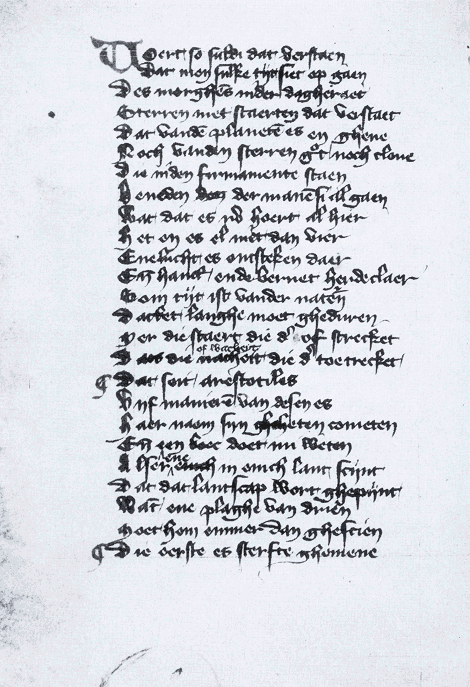 Voert so suldi dat verstaen
Dat men sulke tijt siet op gaen
Des morghēs inder dagheraet
Sterren met staerten dat verstaet
Dat vandē planetē es en ghene
Noch vanden sterren groet noch clene
Die inden firmamente staen
beneden der manē si al gaen
Wat dat es nv hoert al hier
het en es el niet dan vier
Ene lucht es ontsteken daer
Eñ hanct ende bernet hende claer
Som tijt ist vander naterē
Dattet langhe moet gheduren
Mer die staert die d of strecket
Dats die of wachēt die d toe trecket
Dat seit arestotiles
Vijf manierē van desen es
haer naem sijn heten cometen
Eñ een boec doet mi weten
Alser ene in enich lant scijnt
Dat dat lantscap wort ghepijnt
Wat ene plaghe van drien
Moet hem emmer dan ghescien
Die eerste es sterfte ghemene